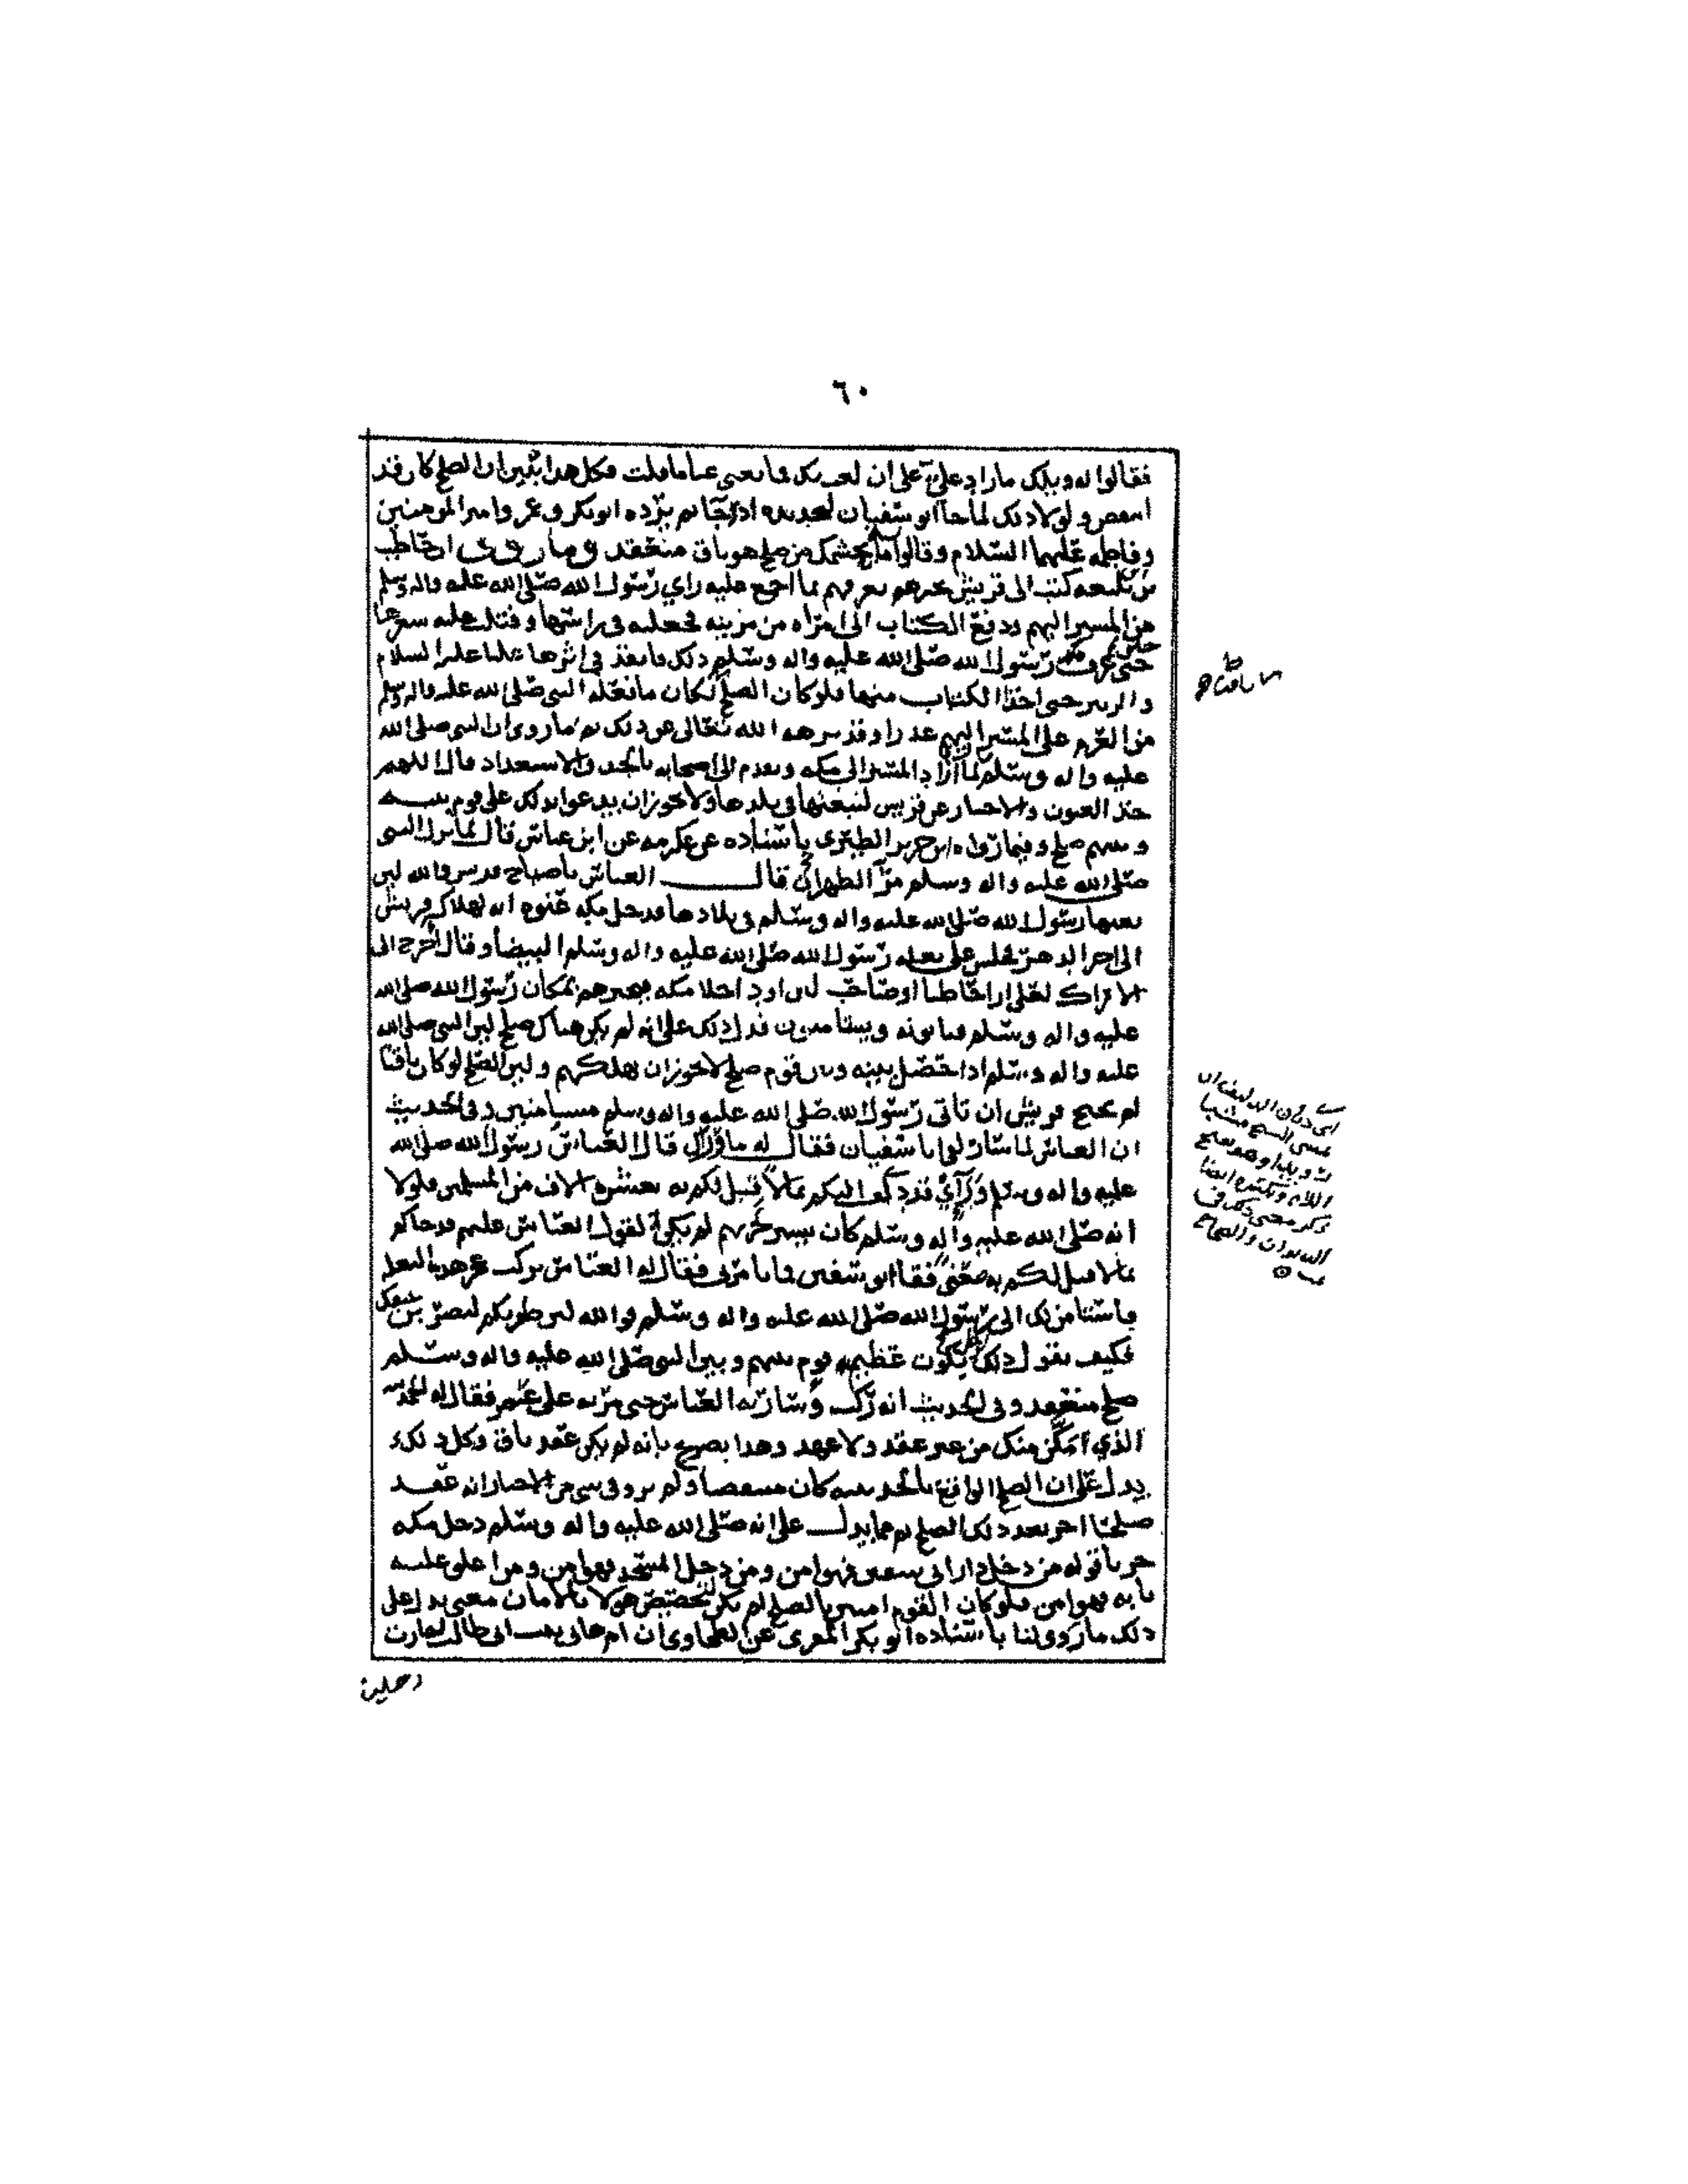 ٦٠
فقالوا له ويلك ما زاد علي على ان لعب بك فما يغني عنا ما قلت فكل هذا يبين ان الصلح كان قد
انتقض ولولا ذلك لما جا ابو سفيان لتجديده اذ جاهم يرده ابو بكر وعمر وامير المومنين
وفاطمه عليهما السلام وقالوا ما تجشمك من صلح هو باق منعقد وما روي ان حاطب
بن بلتعه كتب الى قريش يخبرهم يعرفهم بما اجمع عليه راي رسول الله صلى الله عليه واله وسلم
من المسير اليهم ودفع الكتاب الى امراه من مزينه فجعلته في راسها وفتلت عليه شعرها
حتى عرف رسول الله صلى الله عليه واله وسلم ذلك فانفذ في اثرها عليا عليه السلام
والزبير حتى اخذا الكتاب منها فلو كان الصلح لكان ما فعله النبي صلى الله عليه واله وسلم
من العزم على المسير اليهم غدرا وقد نزهه الله تعالى عن ذلك ثم ما روي ان النبي صلى الله
عليه واله وسلم لما اراد المسير الى مكه وتقدم الى اصحابه بالجد والاستعداد قال اللهم
خذ العيون والاخبار عن قريش لنبغتها في بلدها ولا يجوز ان يدعو بذلك على قوم بينه
وبينهم صلح وفيما رواه ابن جرير الطبري باسناده عن عكرمه عن ابن عباس قال لما نزل النبي
صلى الله عليه واله وسلم مر الظهران قال العباس يا صباح قريش والله لئن
بغتها رسول الله صلى الله عليه واله وسلم في بلادها فدخل مكه عنوه انه لهلاك قريش
الى اخر الدهر فجلس على بغله رسول الله صلى الله عليه واله وسلم البيضا وقال اخرج الى
الاراك لعلي ارا حاطبا او صاحب لبن او داخلا مكه فيخبرهم بمكان رسول الله صلى الله
عليه واله وسلم فياتونه ويستامنون فدل ذلك على انه لم يكن هناك صلح لان النبي صلى الله
عليه واله وسلم اذا حصل بينه وبين قوم صلح لا يجوز ان يهلكهم ولان الصلح لو كان باقيا
لم يحتج قريش ان تاتي رسول الله صلى الله عليه واله وسلم مستامنين وفي الحديث
ان العباس لما سار لقي ابا سفيان فقال له ما وراك قال العباس رسول الله صلى الله
عليه واله وسلم وراي قد دلف اليكم بما لا قبل لكم به بعشره الاف من المسلمين فلولا
انه صلى الله عليه واله وسلم كان يسير لحربهم لم يكن لقول العباس عليهم قد جاكم
بما لا قبل لكم به معنى فقال ابو سفين فما تامرني فقال له العباس تركب عجز هذه البغله
فاستامن لك الى رسول الله صلى الله عليه واله وسلم فوالله لئن ظفر بك ليضربن عنقك
فكيف يقول ذلك عظيم قوم بينهم وبين النبي صلى الله عليه واله وسلم
صلح منعقد وفي الحديث انه ركب وسار به العباس حتى مر به على عمر فقال له الحمد لله
الذي امكن منك من غير عقد ولا عهد وهذا يصرح بانه لم يكن عقد باق وكل ذلك
يدل على ان الصلح الواقع بالحديبيه كان منتقضا ولم يرو في شي من الاخبار انه عقد
صلحا اخر بعد ذلك الصلح ثم مما يدل على انه صلى الله عليه واله وسلم دخل مكه
حربا قوله من دخل دار ابي سفين فهو امن ومن دخل المسجد فهو امن ومن اغلق عليه
بابه فهو امن فلو كان القوم امنين بالصلح لم يكن لتخصيص هولا بالامان معنى يدل على
ذلك ما روي لنا باسناده ابو بكر المقري عن الطحاوي ان ام هاني بنت ابي طالب اجارت